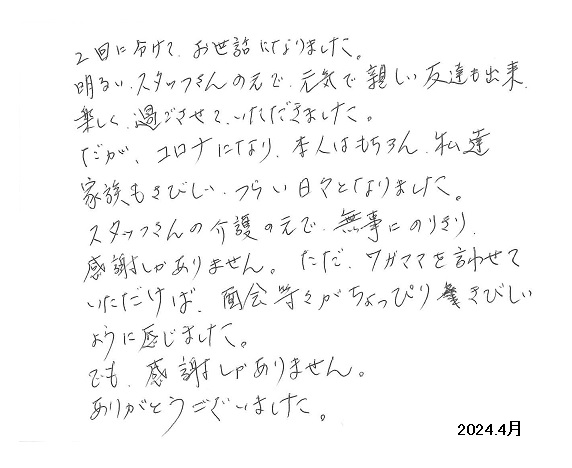 2回に分けて、お世話になりました。
明るい、スタッフさんの元で、元気で親しい友達も出来、
楽しく、過ごさせて、いただきました。
だが、コロナになり、本人はもちろん、私達
家族もきびしい、つらい日々となりました。
スタッフさんの介護の元で、無事にのりきり、
感謝しかありません。ただ、ワガママを言わせて
いただけば、面会等々がちょっぴりきびしい
ように感じました。
でも、感謝しかありません。
ありがとうございました。
2024.4月